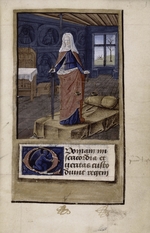 Q oniam mi
sericordia et
veritas custo
diunt regem